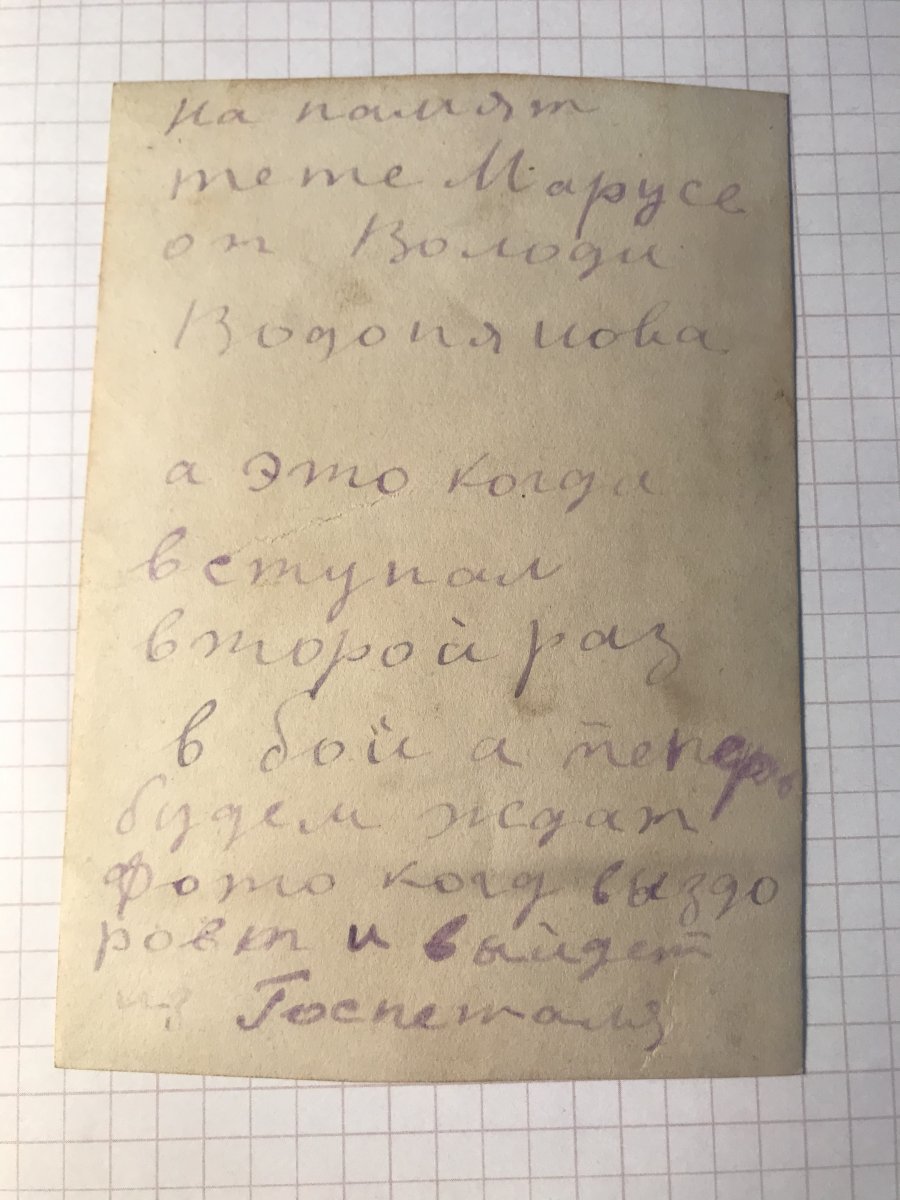 на памят
тете Марусе
от Володи
Водопянова
а это когда
вступал
второй раз
в бой а теперь
будем ждат
фото когд выздо
ровит и выйдет
из Госпеталя